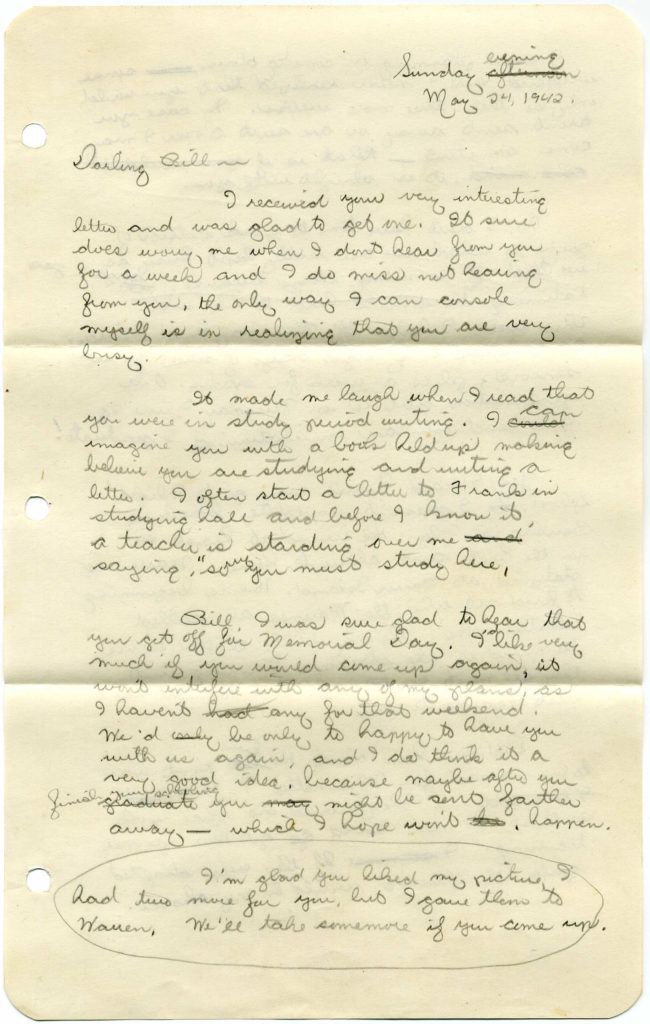 evening
Sunday afternoon
May 24, 1942.
Darling Bill —
I received your very interesting
letter and was glad to get one. It sure
does worry me when I don't hear from you
for a week and I do miss not hearing
from you, the only way I can console
myself is in realizing that you are very
busy.
It made me laugh when I read that
you were in study period writing. I could can
imagine you with a book held up making
believe you are studying and writing a
letter. I often start a letter to Frank in
studying hall and before I know it,
a teacher is standing over me and
saying, "sorry you must study here,
Bill I was sure glad to hear that
you get off for Memorial Day. I'd like very
much if you would come up again, it
won't interfere with any of my plans, as
I haven't had any for that weekend.
We'd only be only to happy to have you
with us again, and I do think it a
very good idea, because maybe after you
finish your schooling
graduate you may might be sent farther
away — which I hope won't happen.
I'm glad you liked my picture, I
had two more for you, but I gave them to
Warren. We'll take somemore if you come up.